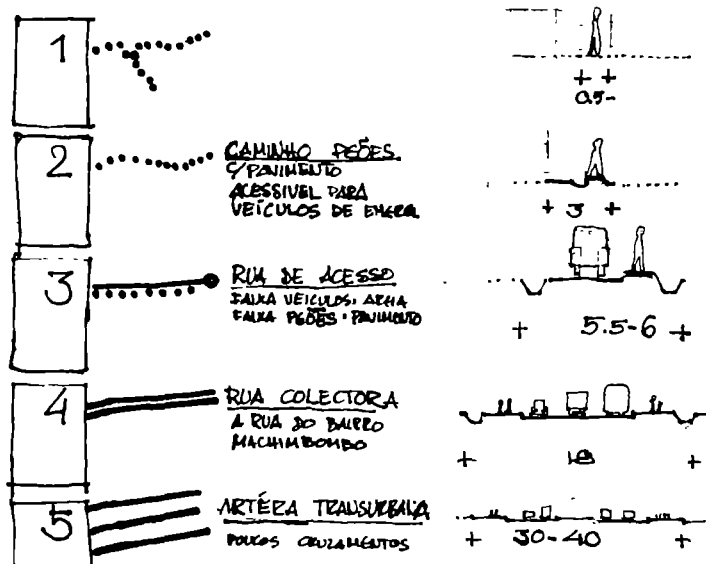 1
+ +
0.5-
2
CAMINHO PEÕES
C/PAVIMENTO
ACESSIVEL PARA
VEÍCULOS DE EMERG.
+ 3 +
3
RUA DE ACESSO
FAIXA VEICULOS: AREIA
FAIXA PEÕES: PAVIMENTO
+ 5.5-6 +
4
RUA COLECTORA
A RUA DO BAIRRO
MACHIMBOMBO
+ +
5
ARTÉRIA TRANSURBANA
POUCOS CRUZAMENTOS
+ 30-40 +